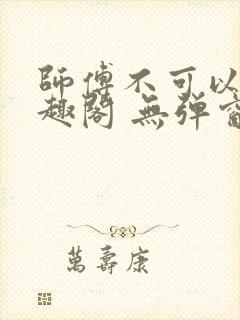 師傅不可以
趣閣 無彈窗
萬壽康